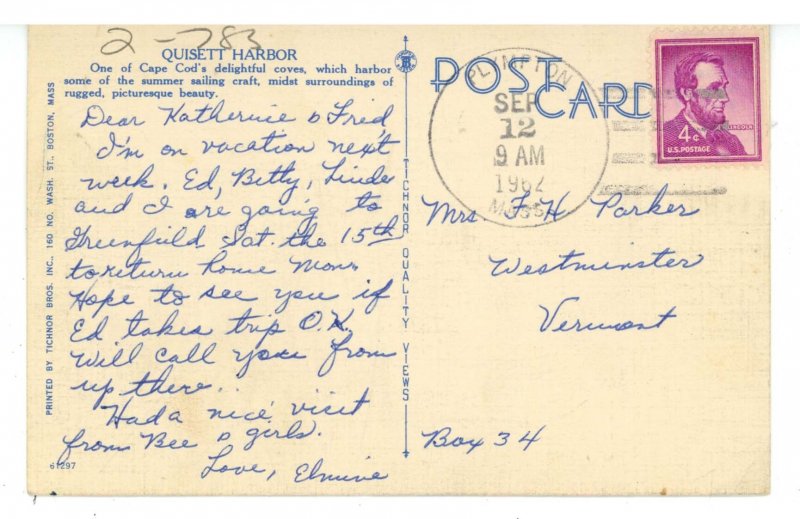 2-783
QUISETT HARBOR
One of Cape Cod's delightful coves, which harbor
some of the summer sailing craft, midst surroundings of
rugged, picturesque beauty.
Dear Katherine & Fred
I'm on vacation next
week. Ed, Betty, Linda
and I are going to
Greenfield Sat. the 15th
to return home Mon.
Hope to see you if
Ed takes trip O.K.
Will call you from
up there..
Had a nice visit
from Bee & girls.
Love, Elmine
61297
PRINTED BY TICHNOR BROS. INC., 160 NO. WASH. ST., BOSTON, MASS
TICHNOR QUALITY VIEWS
POST CARD
PLYMPTON
SEP
12
9 AM
1962
MASS
4¢
LINCOLN
U.S. POSTAGE
Mrs F. H. Parker
Westminster
Vermont
Box 34